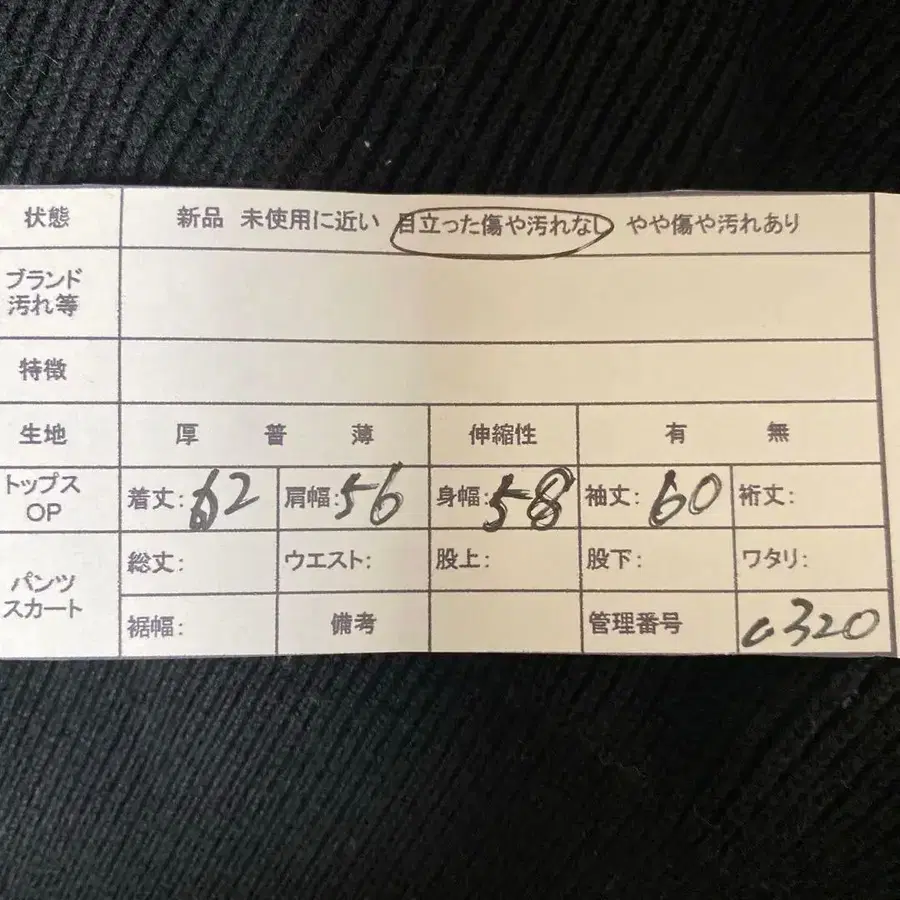 状態 新品 未使用に近い 目立った傷や汚れなし やや傷や汚れあり
ブランド
汚れ等
特徴
生地 厚 普 薄 伸縮性 有 無
トップス
OP
着丈: 62 肩幅: 56 身幅: 58 袖丈: 60 裄丈:
パンツ
スカート
総丈: ウエスト: 股上: 股下: ワタリ:
裾幅: 備考 管理番号 c320